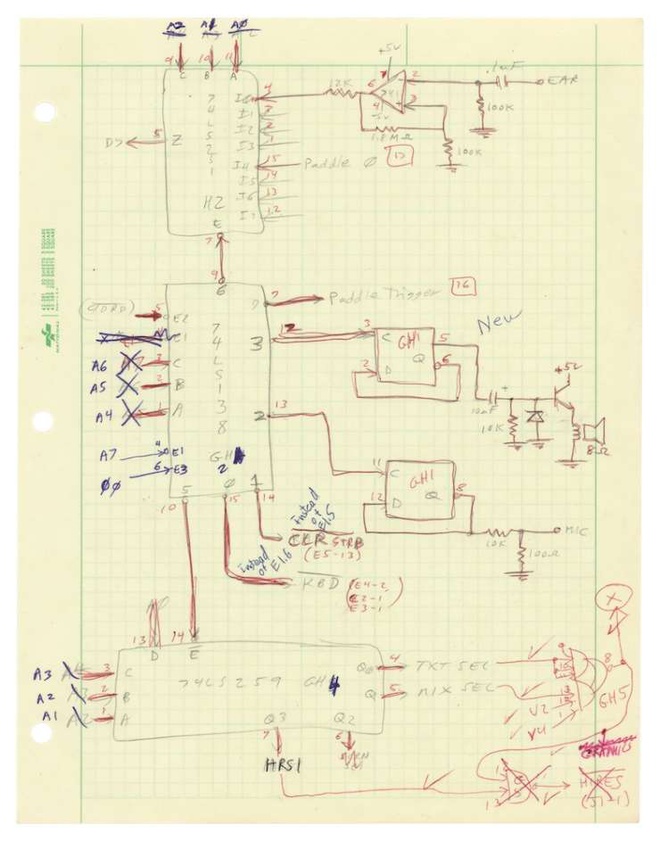 A2 A1 A0
9 10 11
C B A
+5V
.1uF
EAR
12K
741
100K
-5V
1.8 MΩ
100K
17
D7
5
Z
74LS251
H2
I0 4
I1 3
I2 2
I3 1
I4 15
Paddle 0
I5 14
I6 13
I7 12
E
7
9
6
7
Paddle Trigger
16
New
5
E2
E1
A6
3
C
A5
2
B
A4
1
A
A7
4
E1
00
6
E3
74LS138
GH
2
3
12
3
C
GH1
5
Q
6
2
D
+5V
10uF
10K
8Ω
2
13
11
C
GH1
12
D
Q
8
10K
MIC
100Ω
5
0
1
10
15
14
Instead of E15
CLR STRB
(E5-13)
Instead of E1.6
KBD
(E4-2, E2-1 E3-1)
13
14
D
E
A3
3
C
A2
2
B
A1
1
A
74LS259
GH4
Q0
4
TXT SEL
Q1
5
MIX SEL
V2
V4
8
GH5
X
Q3
Q2
7
6
HRS1
GRAPHICS
HIRES
(J1-1)
13